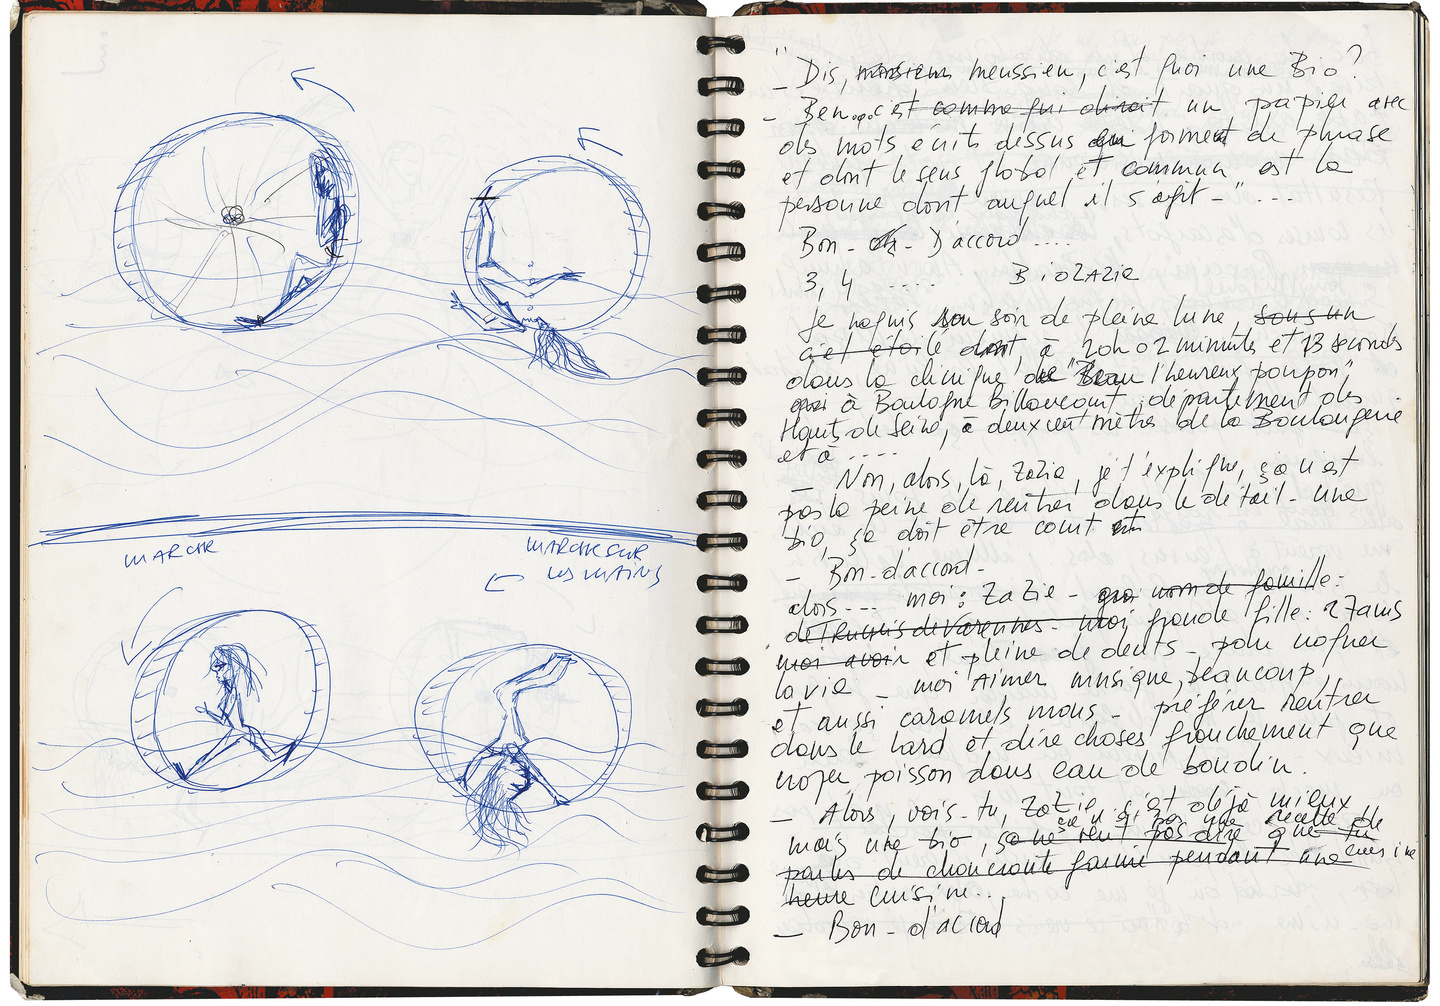 MARCHE
MARCHE SUR
LES MAINS
"
_ Dis, monsieur meussieu, c'est quoi une Bio ?
- Ben... c'est comme qui dirait un papier avec
des mots écrits dessus qui forment de phrase
et dont le sens global et commun est la
personne dont auquel il s'agit - " ....
Bon - d'accord ....
3, 4 .... BiOZAZiE
Je naquis un soir de pleine lune, sous un
ciel étoilé à 20h02 minutes et 13 secondes
dans la clinique de "l'heureux poupon"
qui à Boulogne billancourt, département des
Hauts de Seine, à deux cent mètres de la Boulangerie
et à ....
_ Non, alors, là, Zazie, je t'explique, ça n'est
pas la peine de rentrer dans le détail - une
bio, ça doit être court
- Bon - d'accord -
alors --- moi : ZaZie - nom de famille :
de Truchis de Varennes - moi grande fille : 27 ans
moi avoir et pleine de dents - pour
la vie _ moi Aimer musique, beaucoup,
et aussi caramels mous - préférer rentrer
dans le lard et dire choses franchement que
noyer poisson dans eau de boudin.
- Alors, vois-tu, ZaZie, c'est déjà mieux
ça n'est pas une recette de
mais une bio, ça ne veut pas dire que tu cuisine
parles de choucroute garnie pendant une
heure cuisine..
_ Bon - d'accord